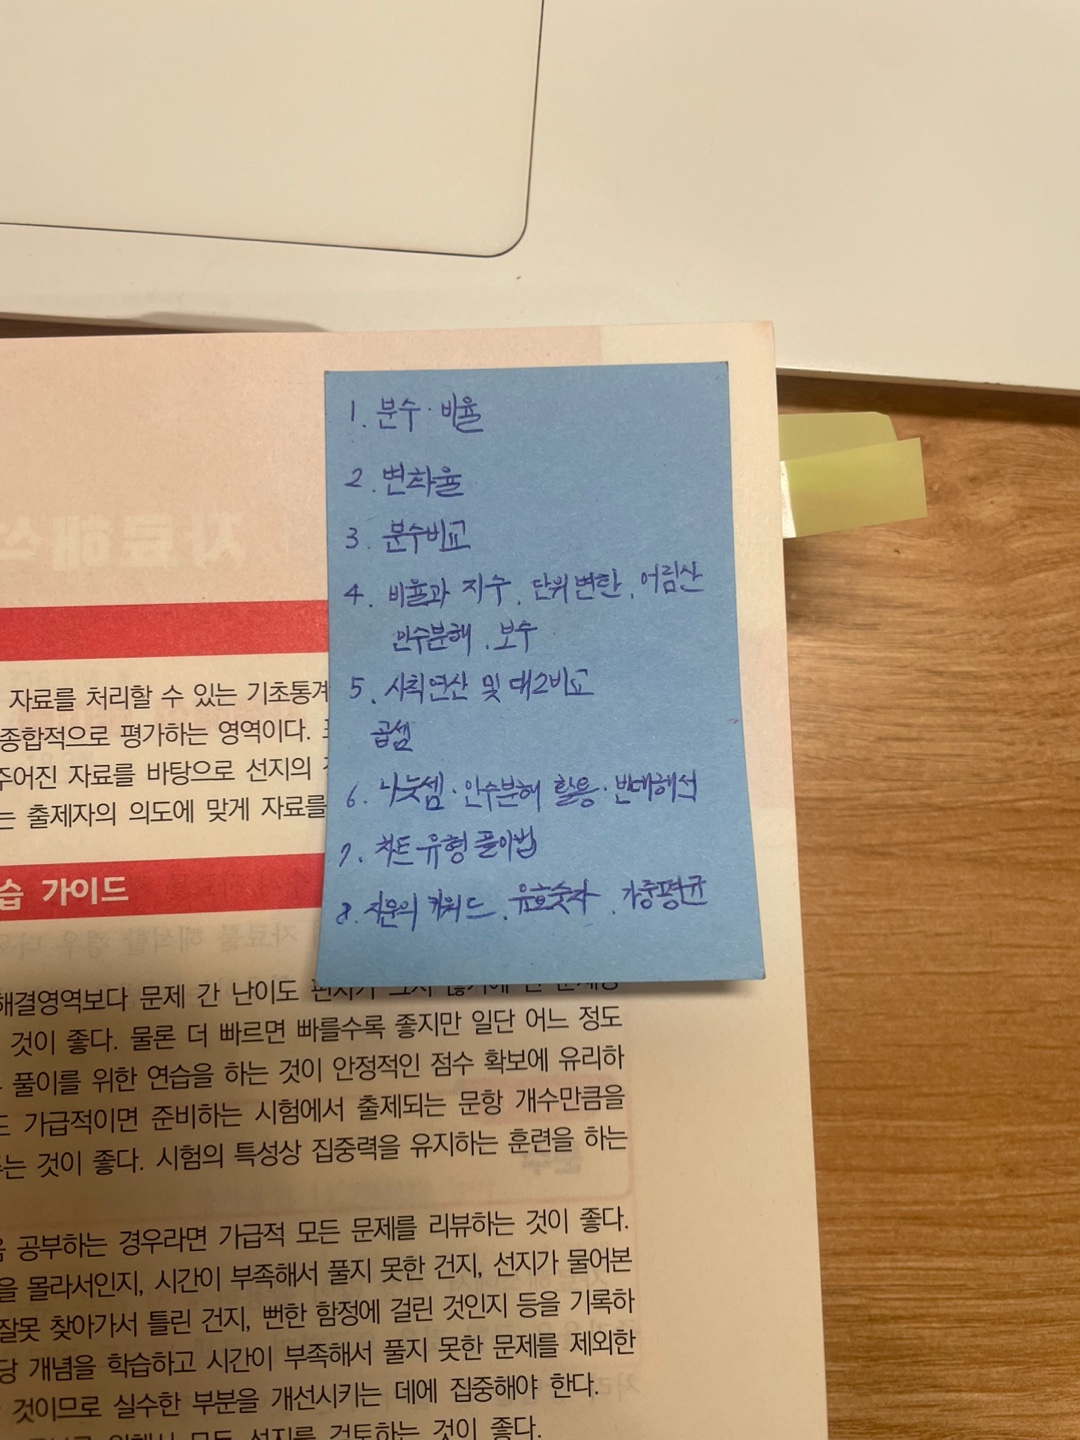 1. 분수·비율
2. 변화율
3. 분수비교
4. 비율과 지수. 단위변환. 어림산
인수분해. 보수
5. 사칙연산 및 대소비교
곱셈
6. 나눗셈·인수분해 활용·반대해석
7. 차트 유형 풀이법
8. 지문의 키워드. 유효숫자. 가중평균
자료해석
자료를 처리할 수 있는 기초통계
종합적으로 평가하는 영역이다.
주어진 자료를 바탕으로 선지의
는 출제자의 의도에 맞게 자료를
습 가이드
해결영역보다 문제 간 난이도
것이 좋다. 물론 더 빠르면 빠를수록 좋지만 일단 어느 정도
풀이를 위한 연습을 하는 것이 안정적인 점수 확보에 유리하
도 가급적이면 준비하는 시험에서 출제되는 문항 개수만큼을
는 것이 좋다. 시험의 특성상 집중력을 유지하는 훈련을 하는
음 공부하는 경우라면 가급적 모든 문제를 리뷰하는 것이 좋다.
을 몰라서인지, 시간이 부족해서 풀지 못한 건지, 선지가 물어본
잘못 찾아가서 틀린 건지, 뻔한 함정에 걸린 것인지 등을 기록하
당 개념을 학습하고 시간이 부족해서 풀지 못한 문제를 제외한
것이므로 실수한 부분을 개선시키는 데에 집중해야 한다.
위해서 모든 선지를 검토하는 것이 좋다.